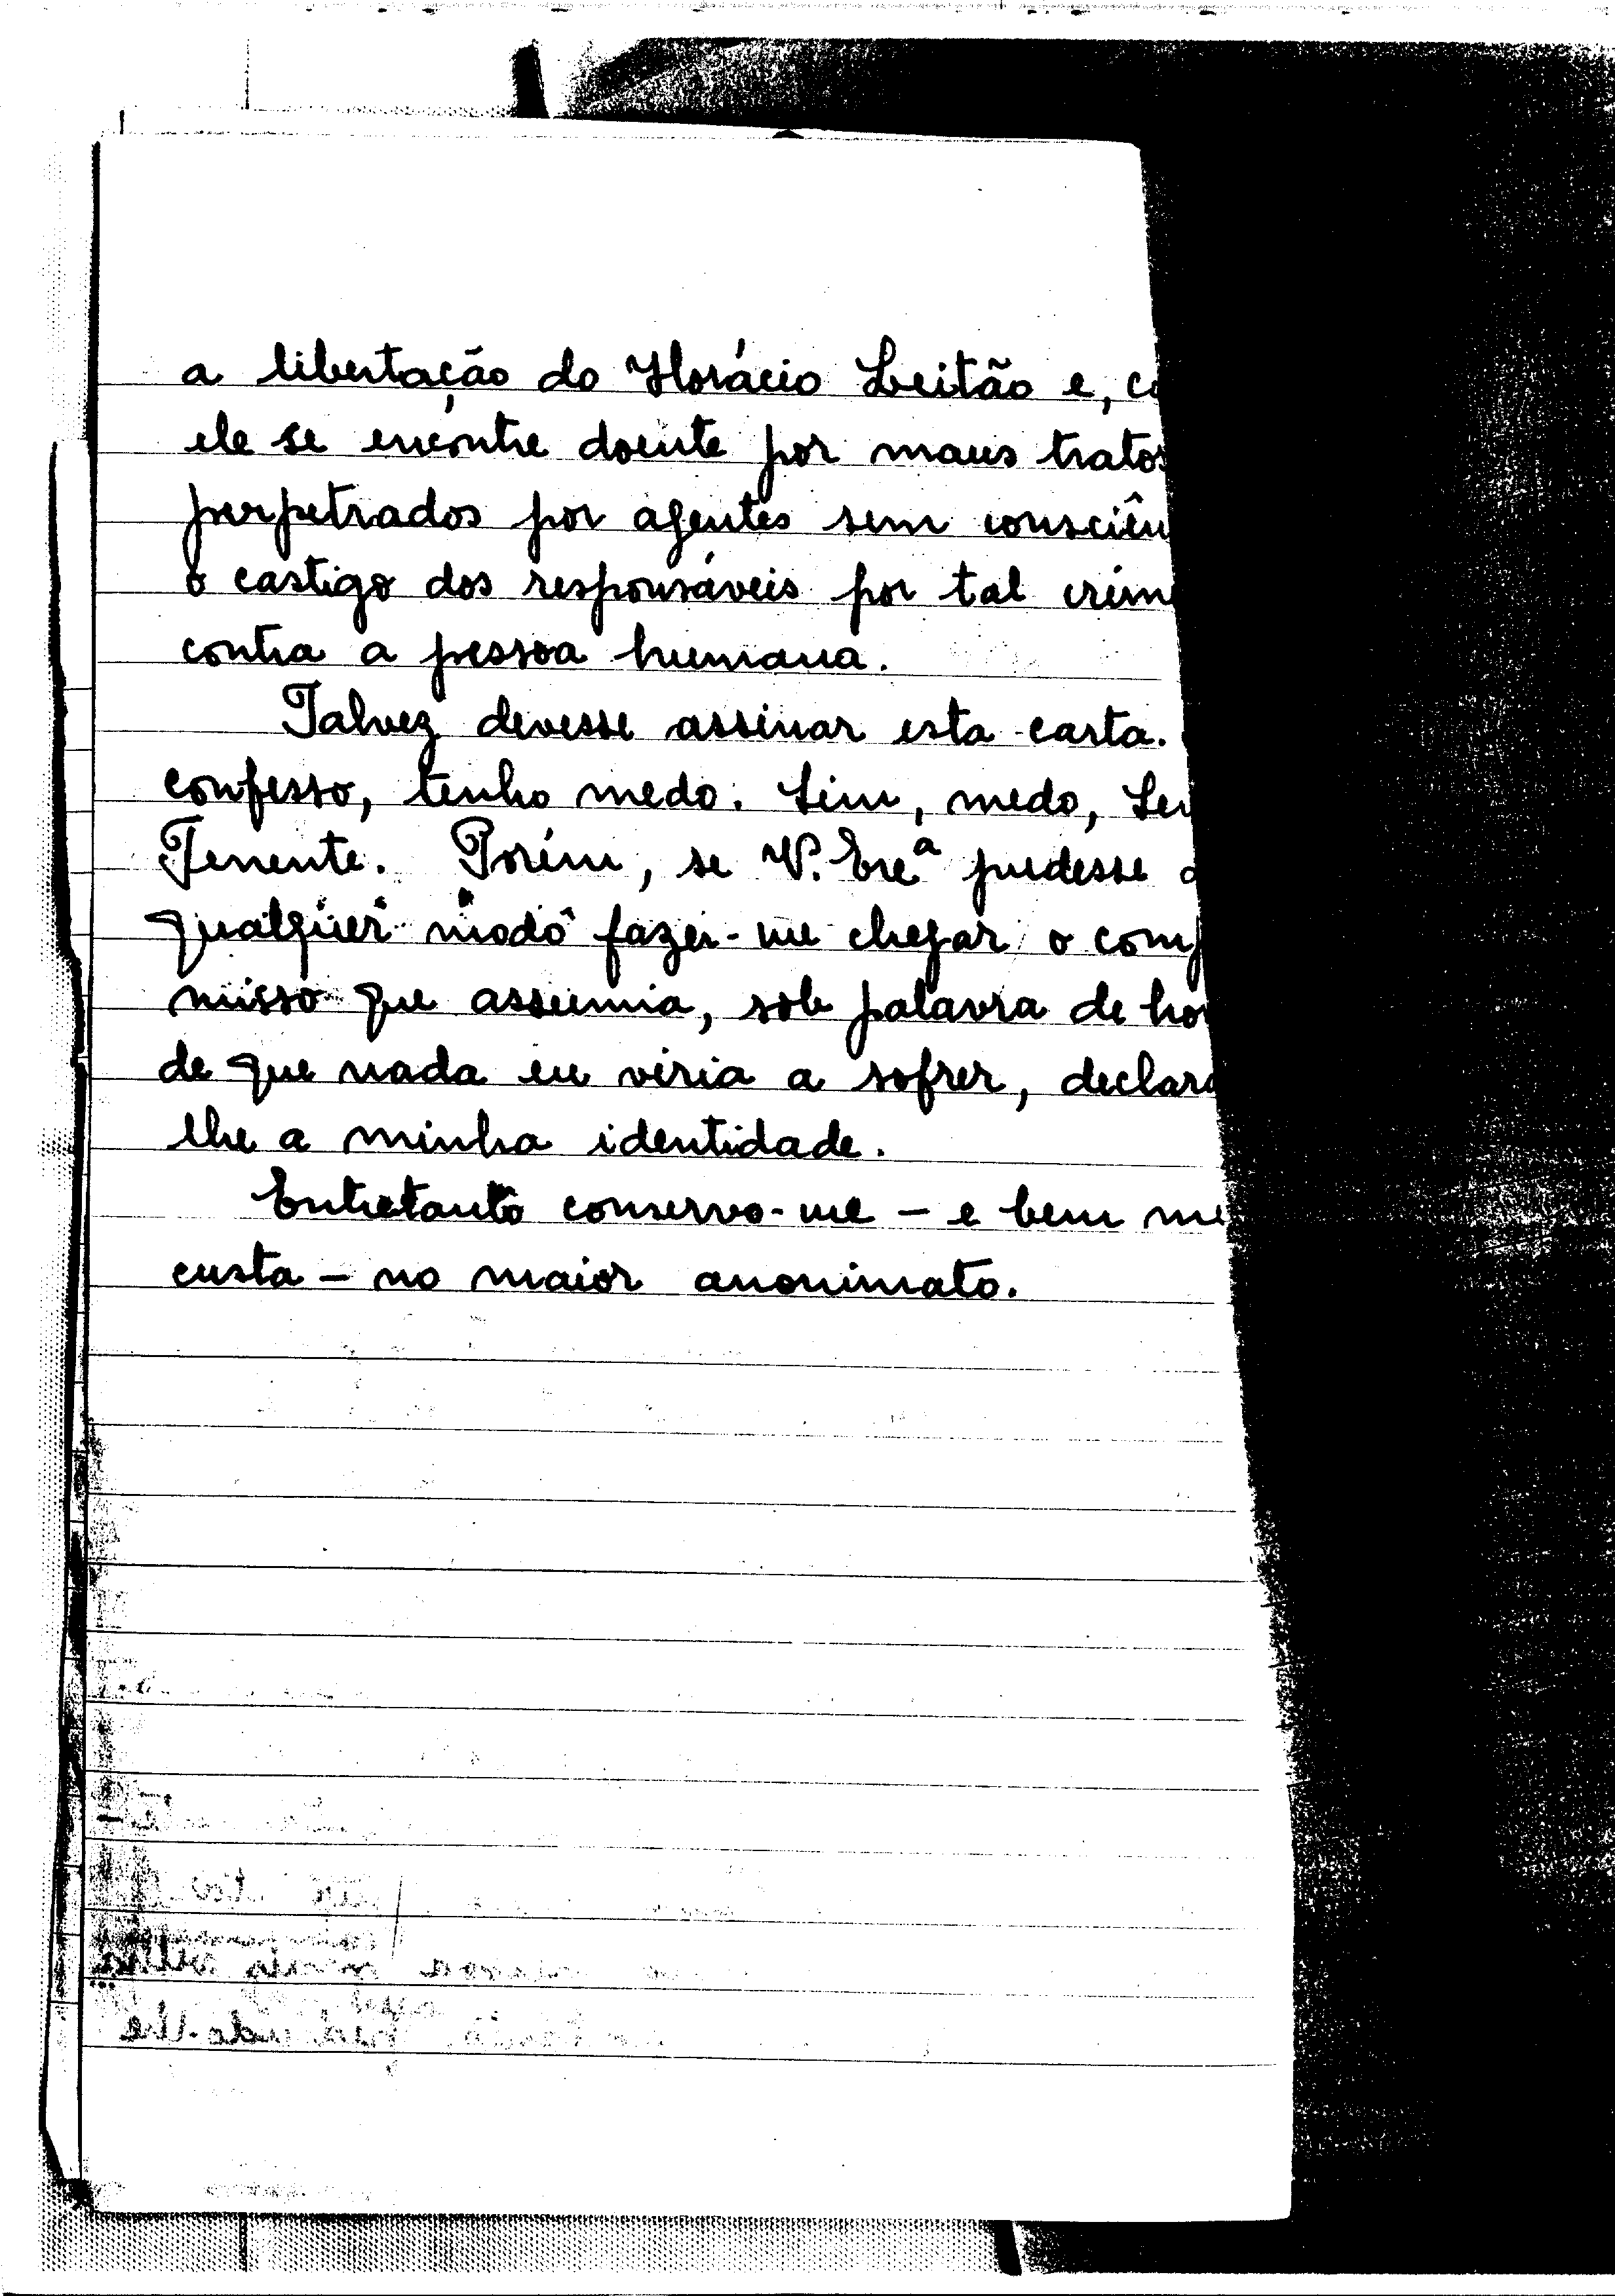 a libertação do Horácio Leitão e, co
ele se encontre doente por maus tratos
perpetrados por agentes sem consciên
o castigo dos responsáveis por tal crim
contra a pessoa humana.
Talvez devesse assinar esta carta.
confesso, tenho medo. Sim, medo, Sen
Tenente. Porém, se V. Excª pudesse d
qualquer modo fazer-me chegar o comp
misso que assumia, sob palavra de hon
de que nada eu viria a sofrer, declara
lhe a minha identidade.
Entretanto conservo-me – e bem me
custa – no maior anonimato.